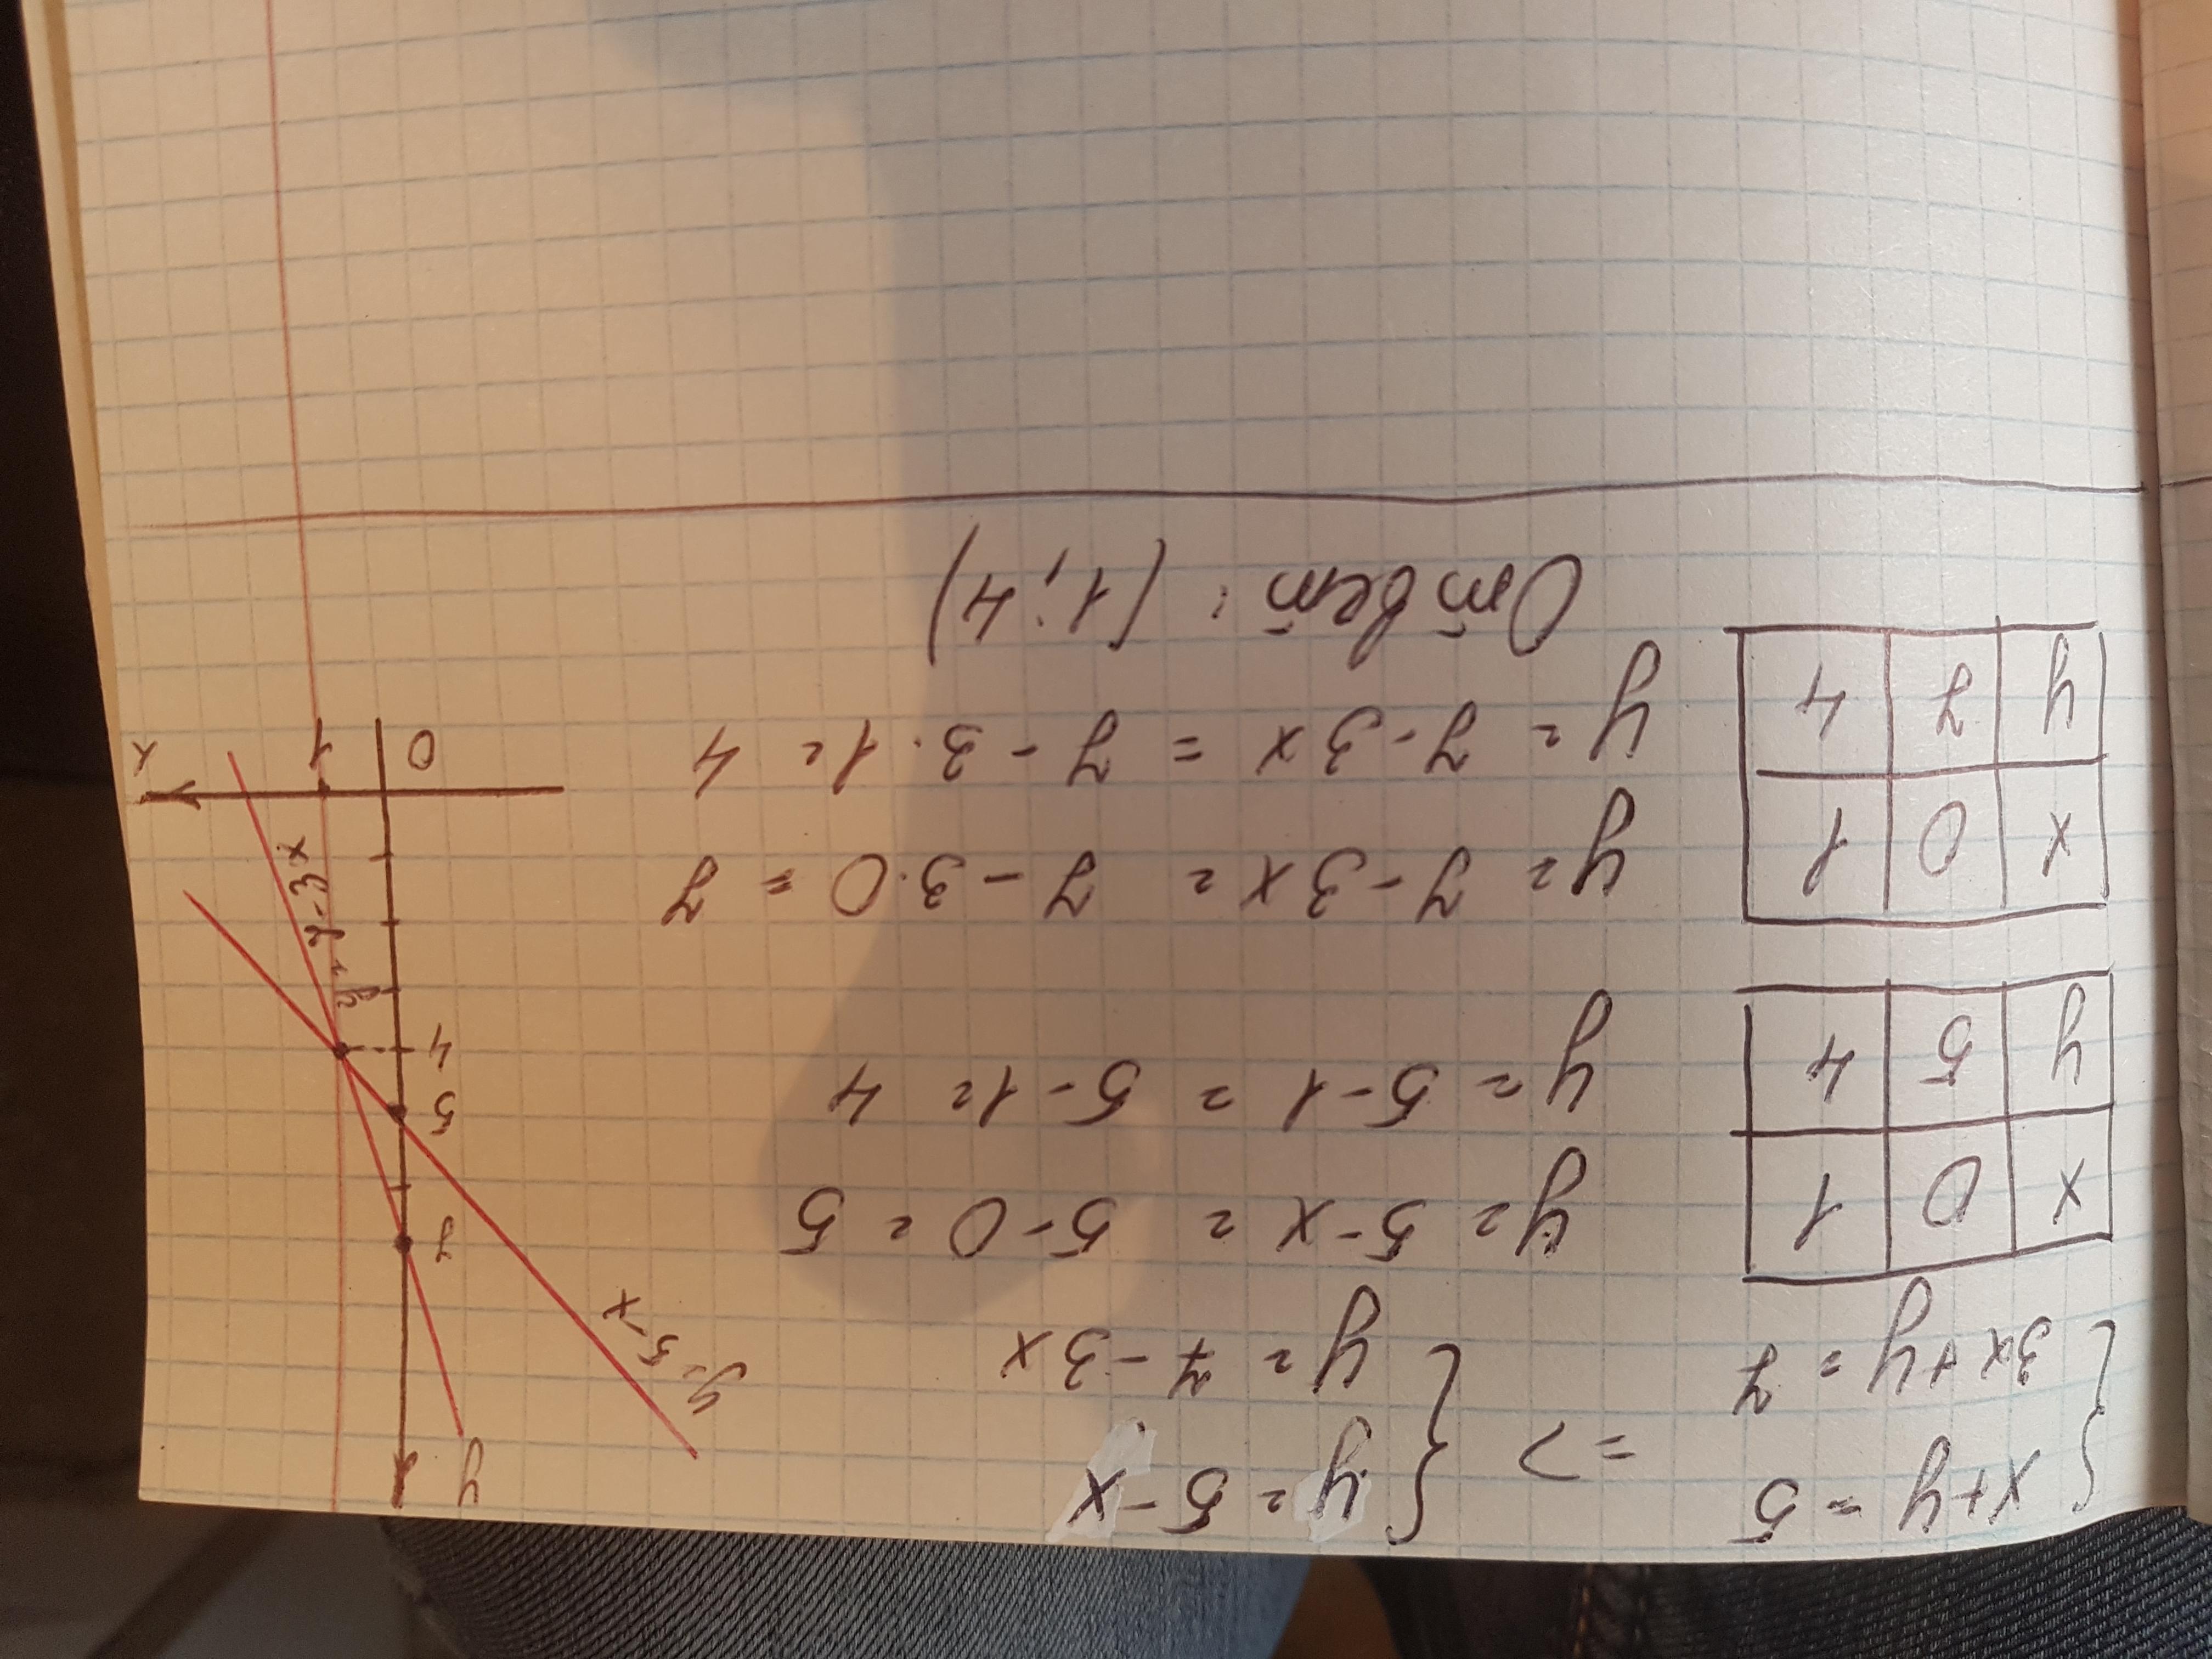 { x+y = 5 => { y = 5-x
{ 3x+y = 7 { y = 7-3x
x 0 1
y 5 4
y = 5-x = 5-0 = 5
y = 5-1 = 5-1 = 4
x 0 1
y 7 4
y = 7-3x = 7-3·0 = 7
y = 7-3x = 7-3·1 = 4
Ответ: (1; 4)
y
y=5-x
7
5
4
y=7-3x
0 1 x